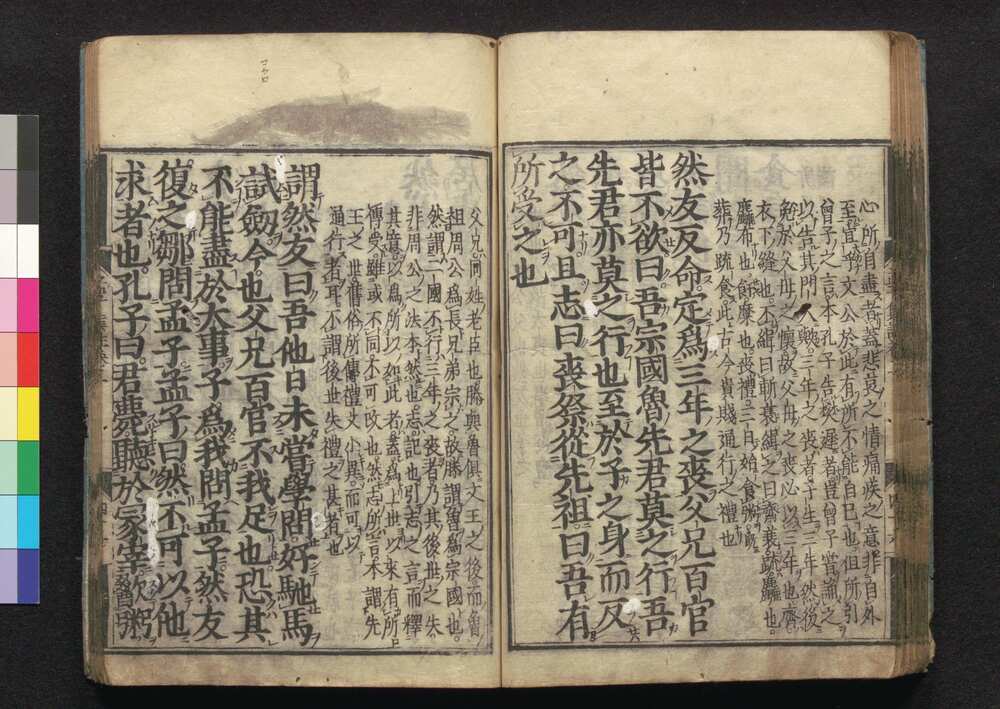 心所自盡者蓋悲哀之情痛疾之意非自外
至宜乎文公於此有所不能自已也但所引
曾子之言本孔子告樊遲者豈曾子嘗誦之
以告其門人歟三年之喪者子生三年然後
免於父母之懷故父母之喪必以三年也齊
衣下縫也不緝曰斬衰緝之曰齊衰疏麤也
麤布也飦糜也喪禮三日始食粥既
葬乃疏食此古今貴賤通行之禮也
然友反命定爲三年之喪父兄百官
皆不欲曰吾宗國魯先君莫之行吾
先君亦莫之行也至於子之身而反
之不可且志曰喪祭從先祖曰吾有
所受之也
父兄同姓老臣也滕與魯俱文王之後而魯
祖周公爲長兄弟宗之故滕謂魯爲宗國也
然謂二國不行三年之喪者乃其後世之失
非周公之法本然也志記也引志之言而釋
其意以爲所以如此者蓋爲上世以來有所
傳受雖或不同不可改也然志所言本謂先
王之世舊俗所傳禮文小異而可以
通行者耳不謂後世失禮之甚者也
謂然友曰吾他日未嘗學問好馳馬
試劒今也父兄百官不我足也恐其
不能盡於大事子爲我問孟子然友
復之鄒問孟子孟子曰然不可以他
求者也孔子曰君薨聽於冢宰歠粥